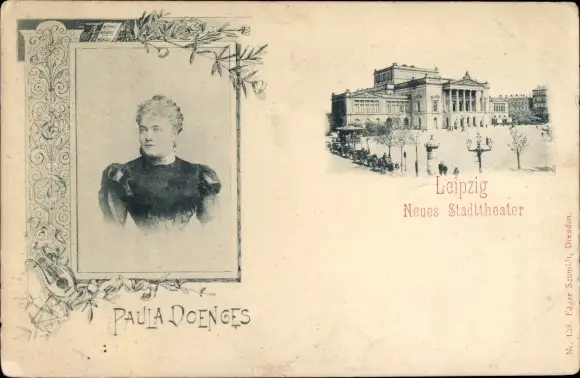 PAULA DOENGES
Leipzig
Neues Stadttheater
Nr. 138. Edgar Schmidt, Dresden.